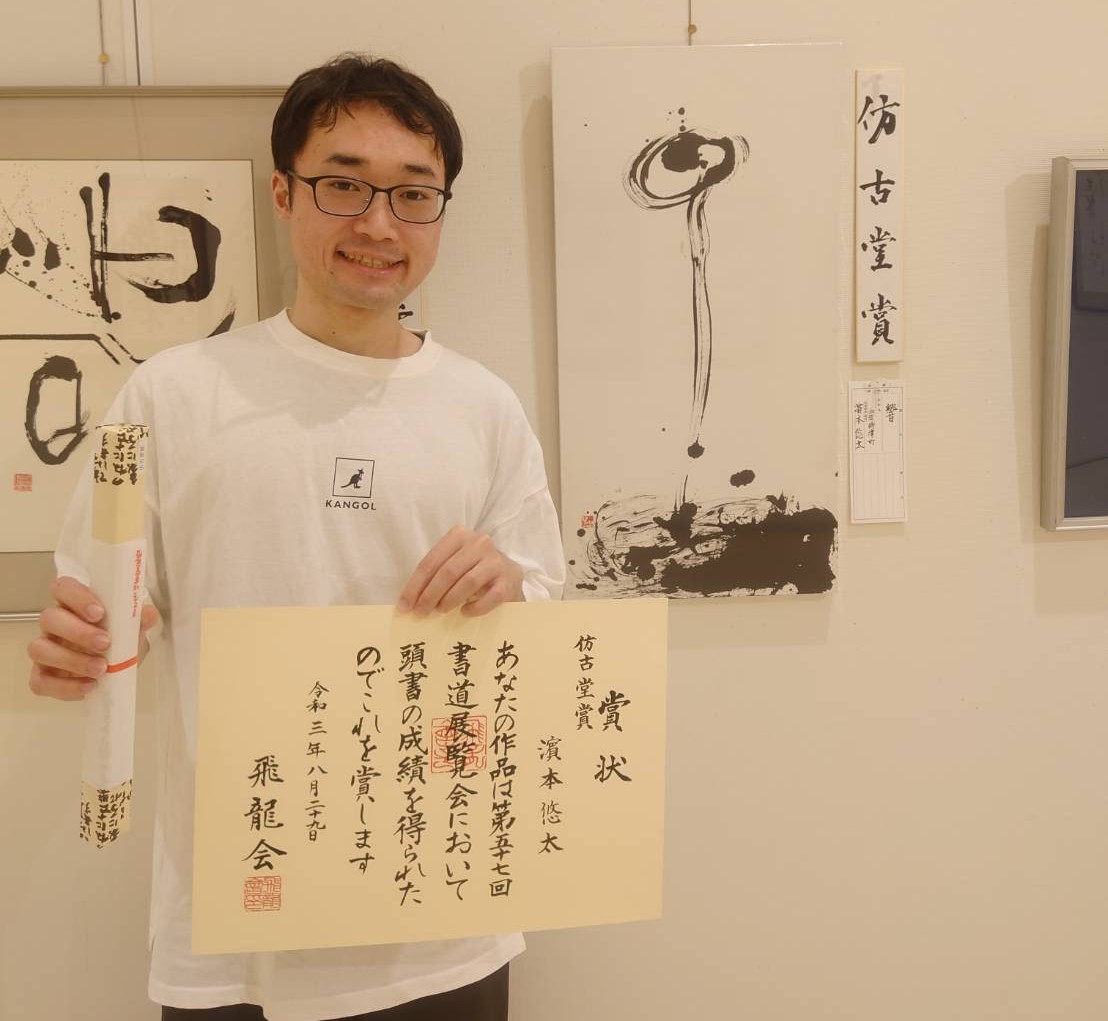 仿古堂賞
響
濵本悠太
KANGOL
賞状
仿古堂賞
濵本悠太
あなたの作品は第五十七回
書道展覧会において
頭書の成績を得られた
のでこれを賞します
令和三年八月二十九日
飛龍会